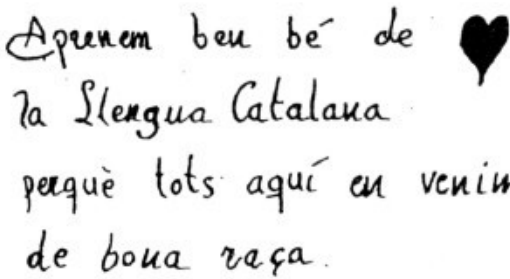 Aprenem ben bé de
la Llengua Catalana
perquè tots aquí en venim
de bona raça.